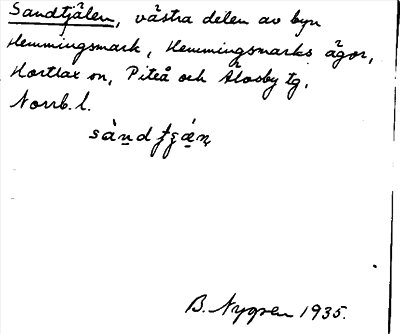 Sandtjälen, västra delen av byn
Hemmingsmark, Hemmingsmarks ägor,
Hortlax sn, Piteå och Älvsby tg,
Norrb. l.
B. Nygren 1935.